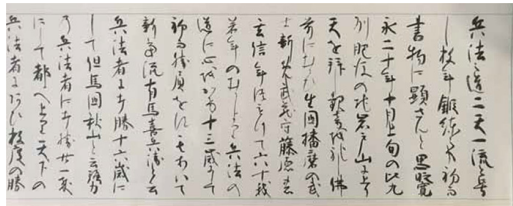 兵法道二天一流と号
し数年鍛錬之事初而
書物に顕さんと思時寛
永二十年十月上旬の比九
州肥後の地岩戸山に上り
天を拝観音を礼仏
前にむかひ生国播磨の武
士新免武蔵守藤原の
玄信年つもりて六十我
若年のむかしより兵法の
道に心をかけ十三歳にして
初而勝負をす
新当流有馬喜兵衛と云
兵法者に打勝十六歳に
して但馬国秋山と云強力
の兵法者に打勝廿一歳
にして都へ上り天下の
兵法者にあひ数度の勝